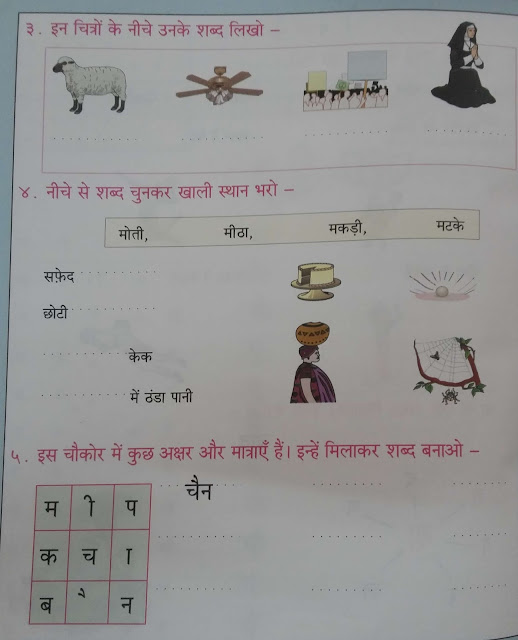 ३. इन चित्रों के नीचे उनके शब्द लिखो –
४. नीचे से शब्द चुनकर खाली स्थान भरो –
मोती, मीठा, मकड़ी, मटके
सफ़ेद
छोटी
केक
में ठंडा पानी
५. इस चौकोर में कुछ अक्षर और मात्राएँ हैं। इन्हें मिलाकर शब्द बनाओ –
चैन
म ी प
क च ा
ब ै न